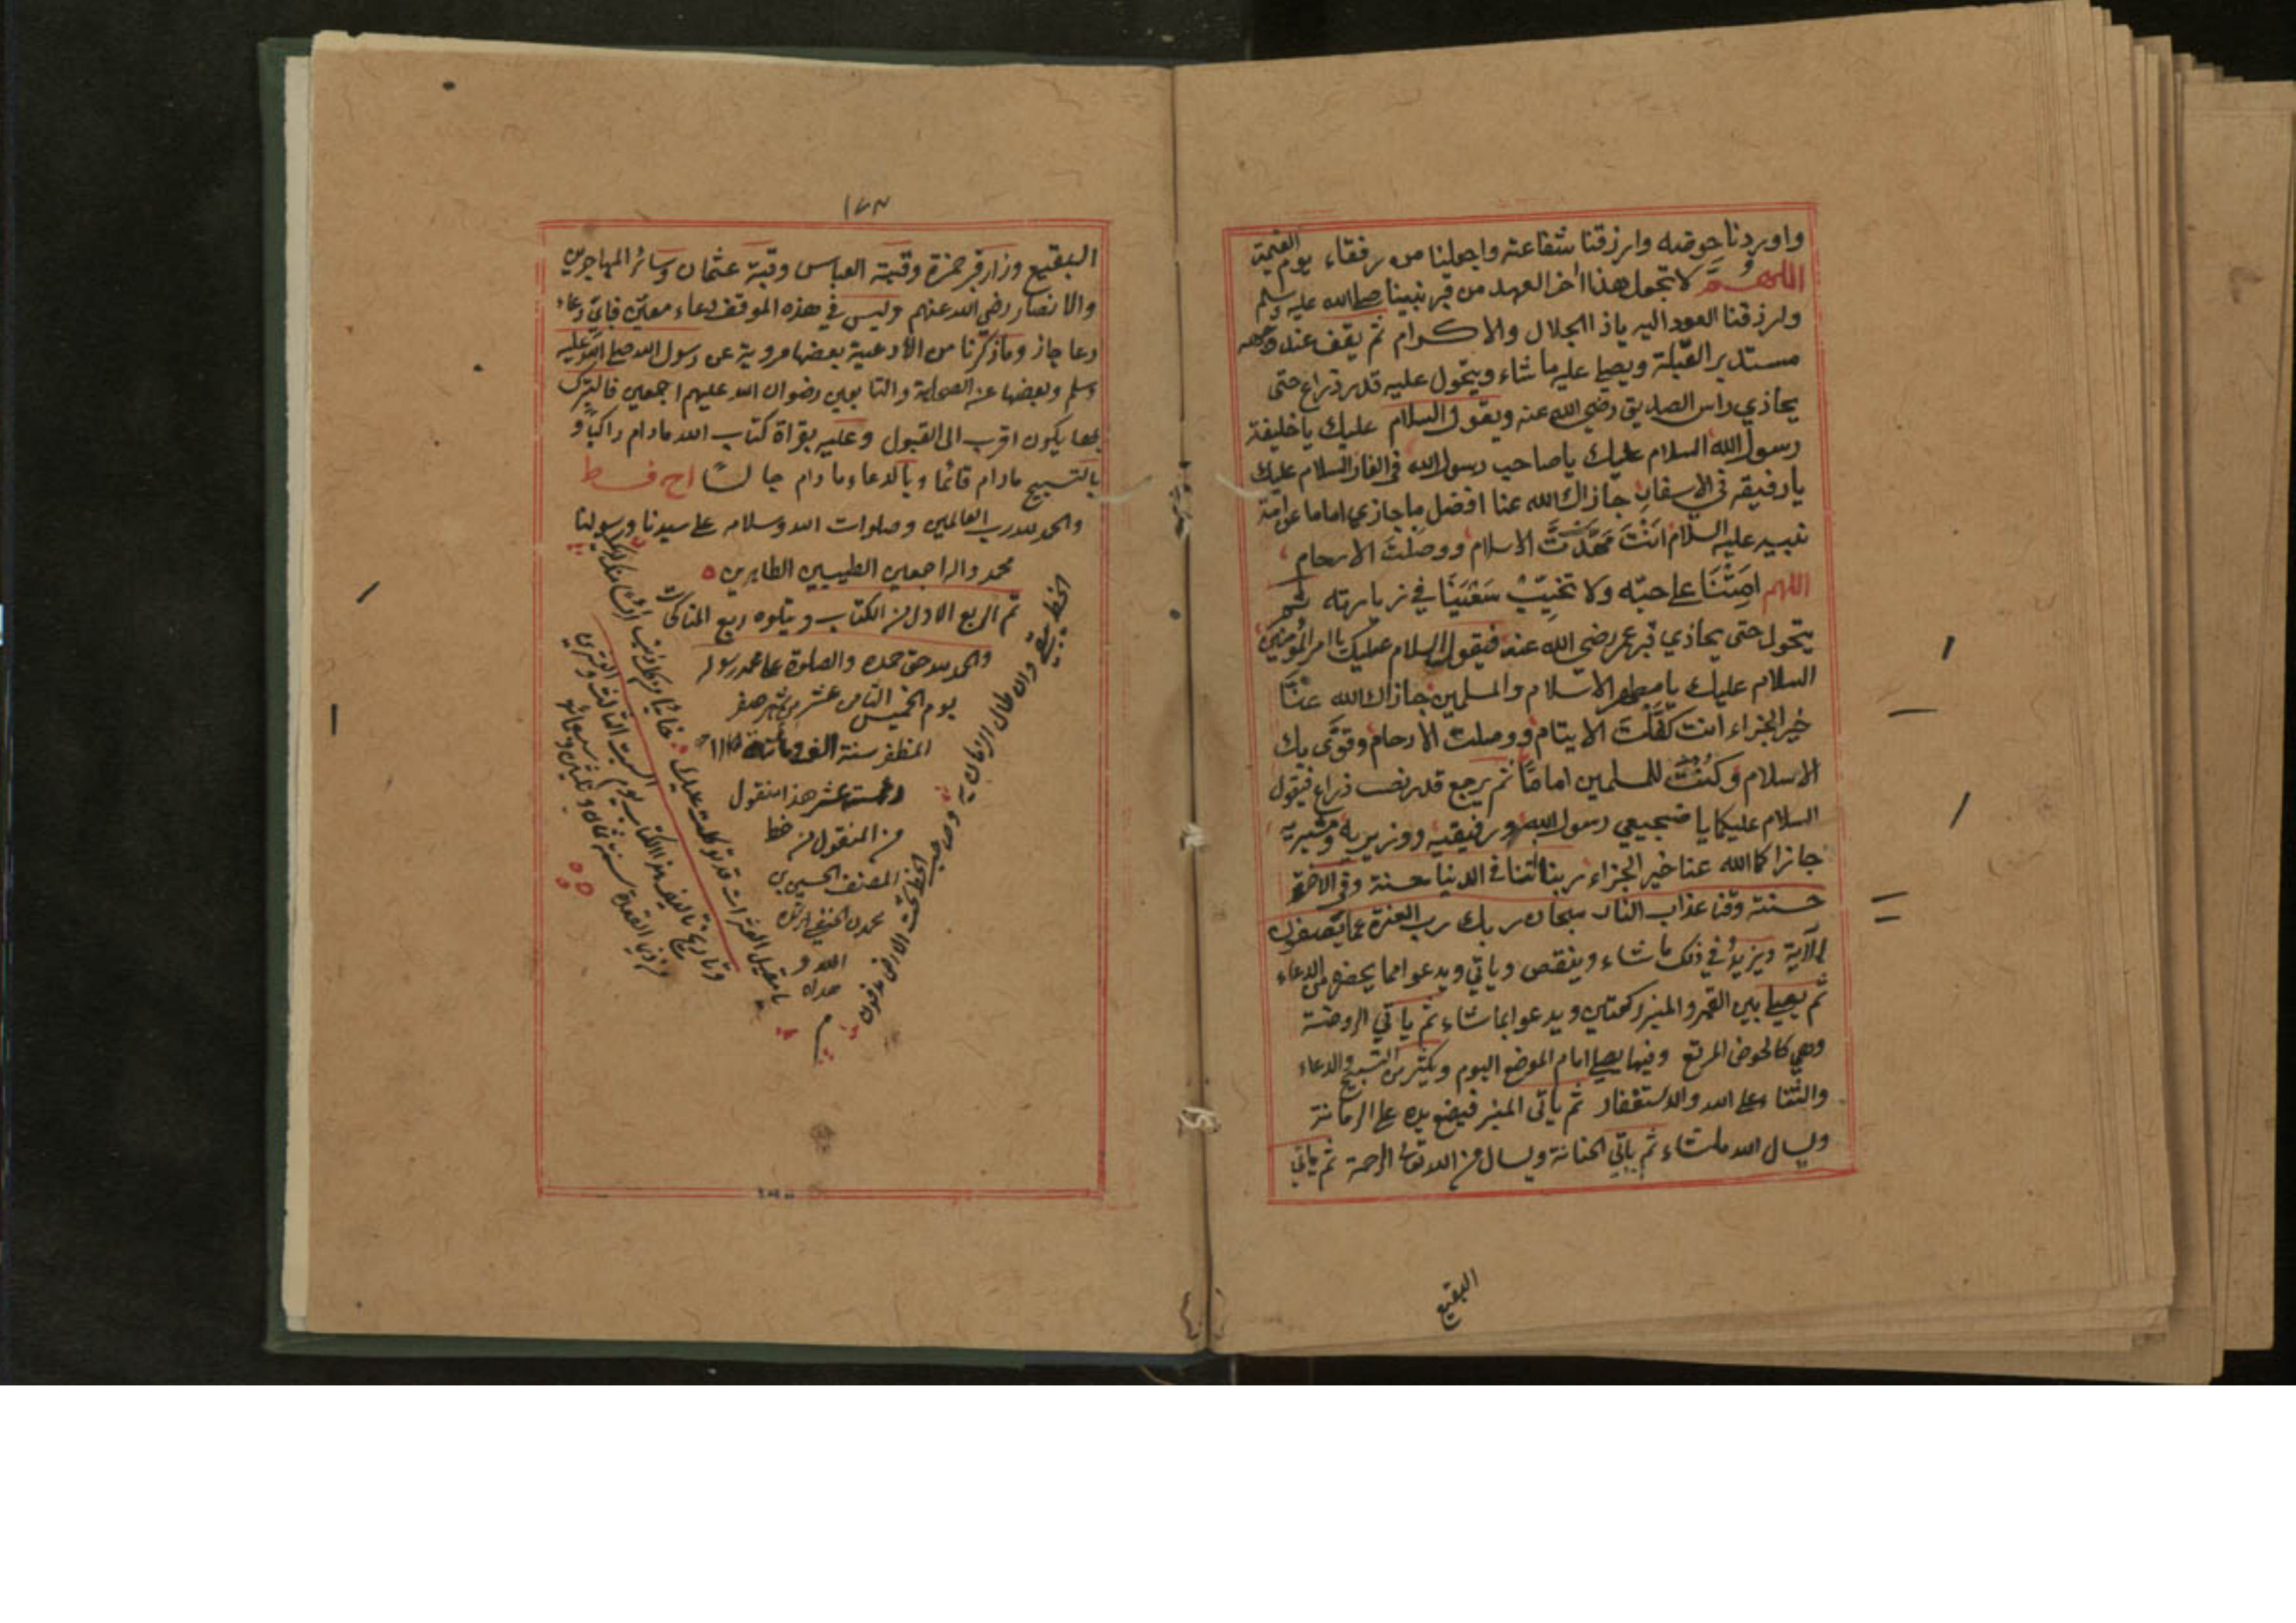 واوردنا حوضه وارزقنا شفاعته واجعلنا من رفقاء يوم القيمة
اللهم لا تجعل هذا اخر العهد من قبر نبينا صلى الله عليه وسلم
وارزقنا العود اليه ياذا الجلال والاكرام ثم يقف عند وجهه
مستدبر القبلة ويصلي عليه ما شاء ويتحول عليه قدر ذراع حتى
يحاذي راس الصديق رضي الله عنه ويقول السلام عليك ياخليفة
رسول الله السلام عليك ياصاحب رسول الله في الغار السلام عليك
يا رفيقه في الاسفار جازاك الله عنا افضل ما جازي اماما عن امة
نبيه عليه السلام انت مهدت الاسلام ووصلت الارحام
اللهم امتنا على حبه ولا تخيب سعينا في زيارته ثم
يتحول حتى يحاذي قبر عمر رضي الله عنه فيقول السلام عليك يا امير المؤمنين
السلام عليك يا مظهر الاسلام والمسلمين جازاك الله عنا
خير الجزاء انت كفلت الايتام ووصلت الارحام وقوى بك
الاسلام وكنت للمسلمين اماما ثم يرجع قدر نصف ذراع فيقول
السلام عليكما يا ضجيعي رسول الله ورفيقيه ووزيريه ومشيريه
جازاكما الله عنا خير الجزاء ربنا اتنا في الدنيا حسنة وفي الاخرة
حسنة وقنا عذاب النار سبحان ربك رب العزة عما يصفون
الآية ويزيد في ذلك ما شاء وينقص وياتي ويدعو امما يحضره من الدعاء
ثم يصلي بين القبر والمنبر ركعتين ويدعو ابما شاء ثم ياتي الروضة
وهي كالحوض المربع وفيها يصلي امام الموضع اليوم ويكثر من التسبيح والدعاء
والثناء على الله والاستغفار ثم ياتي المنبر فيضع يده على الرمانة
ويسال الله ما شاء ثم ياتي الحنانة ويسال من الله تعالى الرحمة ثم ياتي
البقيع
١٧٣
البقيع وزار قبر حمزة وقبة العباس وقبة عثمان وسائر المهاجرين
والانصار رضي الله عنهم وليس في هذه الموقف دعاء معين فاي دعاء
دعا جاز وما ذكرنا من الادعية بعضها مروية عن رسول الله صلى الله عليه
وسلم وبعضها عن الصحابة والتابعين رضوان الله عليهم اجمعين فالتبرك
بها يكون اقرب الى القبول وعليه بقراة كتاب الله مادام راكبا و
بالتسبيح مادام قائما وبالدعاء مادام جالسا
والحمد لله رب العالمين وصلوات الله وسلامه على سيدنا ورسولنا
محمد واله اجمعين الطيبين الطاهرين
تم الربع الاول من الكتاب ويتلوه ربع المناكحات
والحمد لله حق حمده والصلوة على محمد رسوله
يوم الخميس الثامن عشر من شهر صفر
المظفر سنة الف ومائة
عشر هذا منقول
من المنقول من خط
المصنف
محمد
الله
م
الخط يبقى وان طال الزمان به وصاحب الخط تحت الارض مدفون
يا مقيل العثرات قد توكلت عليك